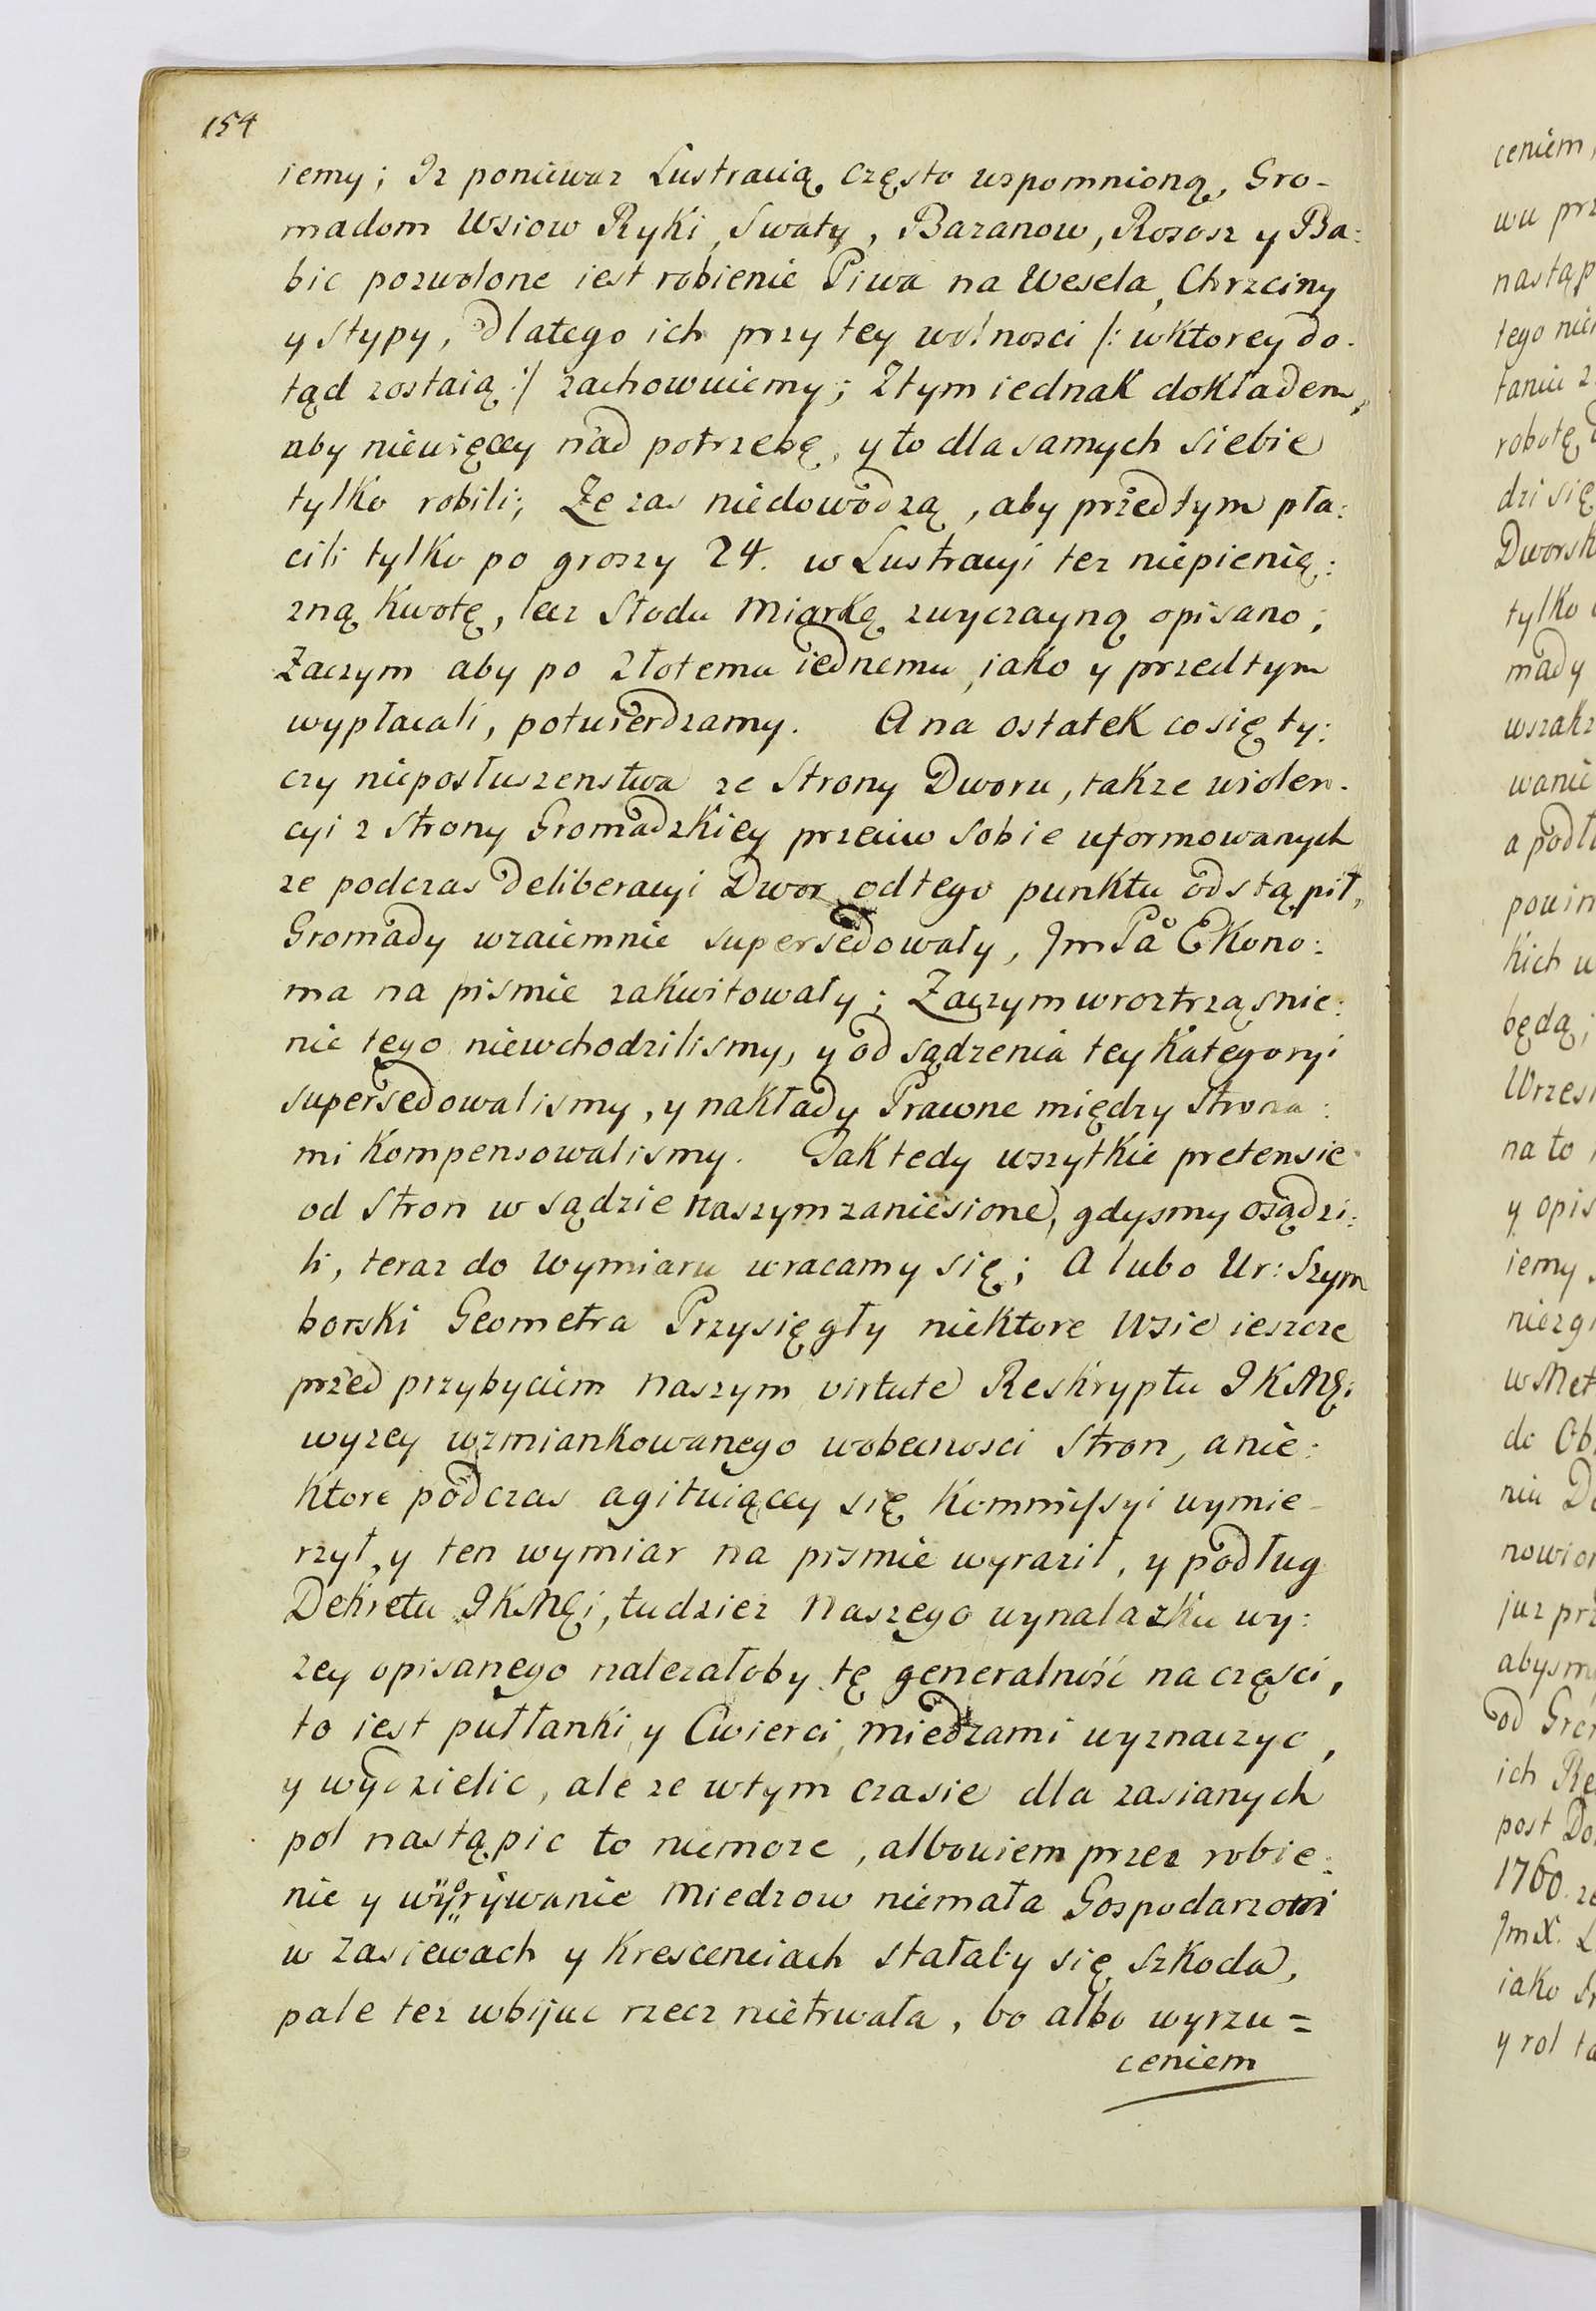 154
iemy; Iz poniewaz Lustracią często wspomnioną, Gro-
madom Wsiow Ryki, Swaty, Baranow, Rososz y Ba:
bic pozwolone iest robienie Piwa na Wesela, Chrzciny
y Stypy, Dlatego ich przy tey wolnosci /: wktorey do-
tąd zostaią :/ zachowuiemy; Ztym iednak dokładem,
aby niewięcey nad potrzebę, y to dla samych siebie
tylko robili; Ze zas niedowodzą, aby przedtym pła:
cili tylko po groszy 24. w Lustracyi tez niepienię:
zną Kwotę, lecz Słodu Miarkę zwyczayną opisano;
Zaczym aby po Złotemu iednemu, iako y przedtym
wypłacali, potwierdzamy. A na ostatek co się ty:
czy nieposłuszenstwa ze Strony Dworu, takze wiolen-
cyi z Strony Gromadzkiey przeciw sobie uformowanych
ze podczas Deliberacyi Dwor od tego punktu odstąpił,
Gromady wzaiemnie supersedowały, JmPa Ekono:
ma na pismie zakwitowały; Zaczym wroztrząsnie:
nie tego niewchodzilismy, y od sądzenia tey Kategoryi
supersedowalismy, y nakłady Prawne między Strona:
mi Kompensowalismy. Tak tedy wszytkie pretensie
od Stron w sądzie naszym zaniesione, gdysmy osądzi:
li, teraz do wymiaru wracamy się; A lubo Ur: Szym
borski Geometra Przysięgły niektore Wsie ieszcze
przed przybyciem naszym virtute Reskryptu JKMę:
wyzey wzmiankowanego wobecnosci Stron, a nie:
ktore podczas agituiącey się Kommissyi wymie-
rzył, y ten wymiar na pismie wyraził, y podług
Dekretu JKMęi, tudziez Naszego wynalazku wy:
zey opisanego nalezałoby tę generalność na części,
to iest pułłanki, y Cwierci, miedzami wyznaczyc,
y wydzielic, ale ze wtym czasie dla zasianych
pol nastąpic to niemoze, albowiem przez robie:
nie y wyorywanie Miedzow niemała Gospodarzom
w Zasiewach y Krescenciach stałaby się szkoda,
pale tez wbijac rzecz nietrwała, bo albo wyrzu=
ceniem